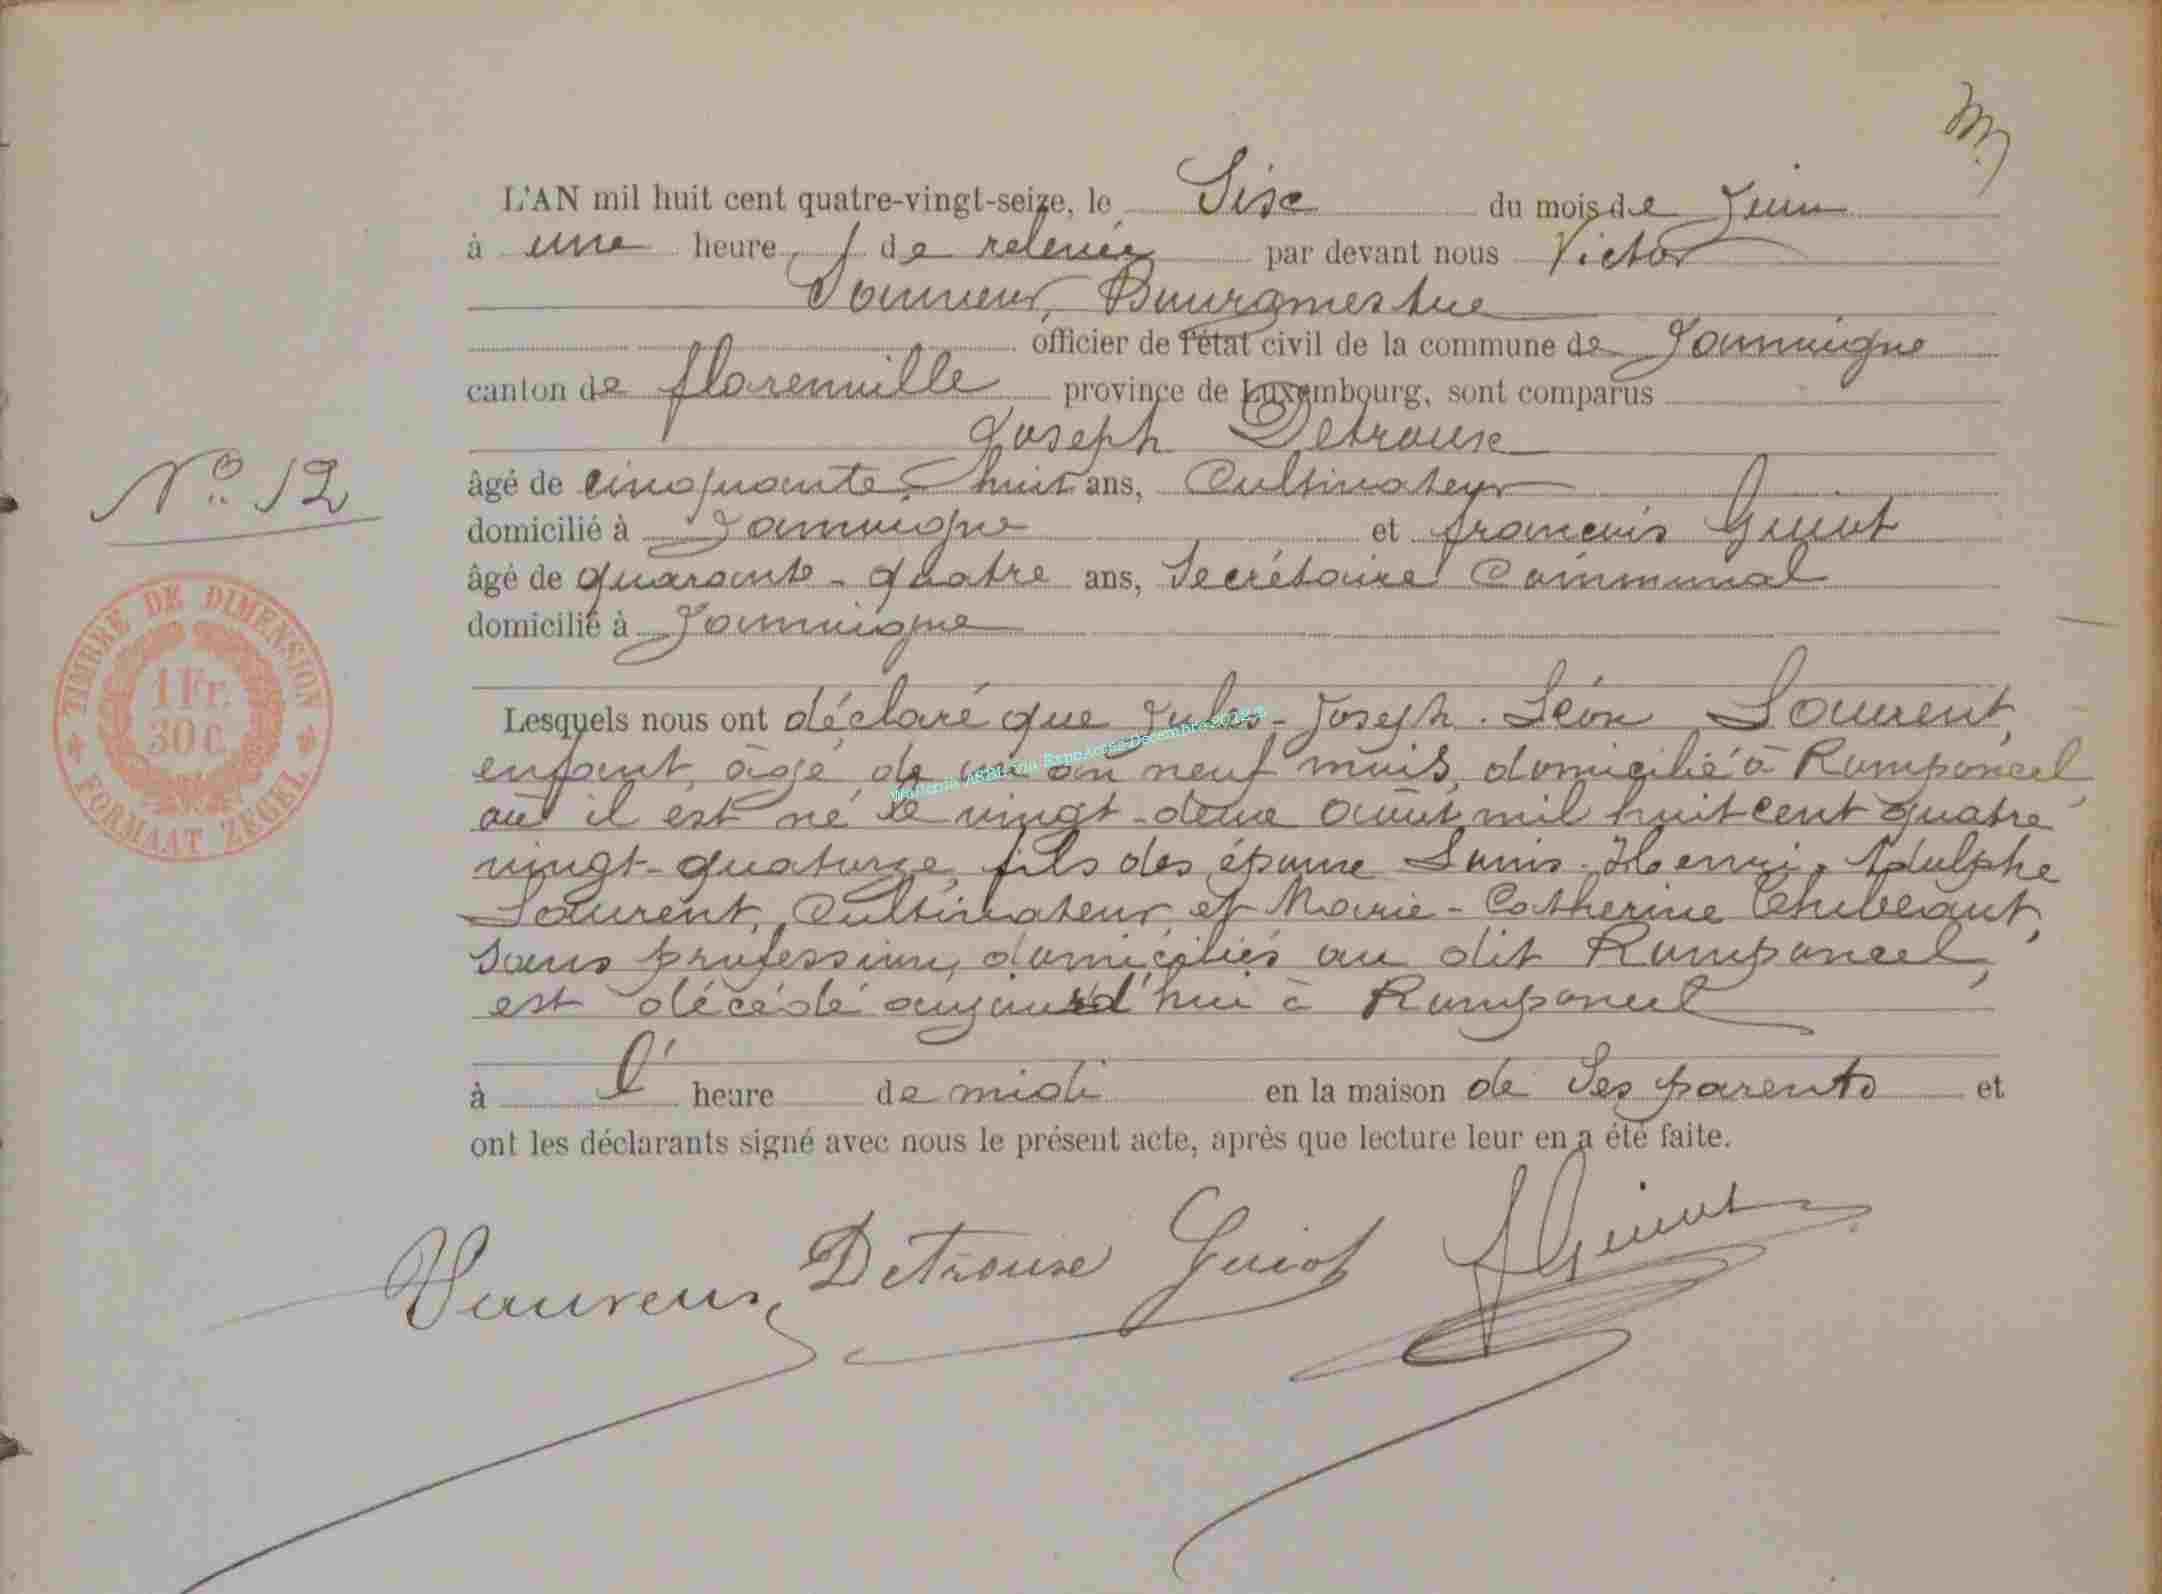 L'AN mil huit cent quatre-vingt-seize, le Six du mois de Juin
à une heure, de relevée par devant nous Victor
Bourgmestre
officier de l'état civil de la commune de Jamoigne
canton de florenville province de Luxembourg, sont comparus
Joseph Detroux
âgé de cinquante-huit ans, Cultivateur
domicilié à Jamoigne et françois Guiot
âgé de quarante-quatre ans, Secrétaire Communal
domicilié à Jamoigne
N° 12
TIMBRE DE DIMENSION
1 Fr.
30 c.
FORMAAT ZEGEL
Lesquels nous ont déclaré que Jules-Joseph-Léon Laurent,
enfant, âgé de un an neuf mois, domicilié à Romponcel,
où il est né le vingt-deux août mil huit cent quatre
vingt-quatorze, fils des époux Louis-Henri-Adolphe
Laurent, Cultivateur, et Marie-Catherine Thibeaut,
sans profession, domiciliés au dit Romponcel,
est décédé aujourd'hui à Romponcel
à l' heure de midi en la maison de Ses parents et
ont les déclarants signé avec nous le présent acte, après que lecture leur en a été faite.
Detroux Guiot FGuiot